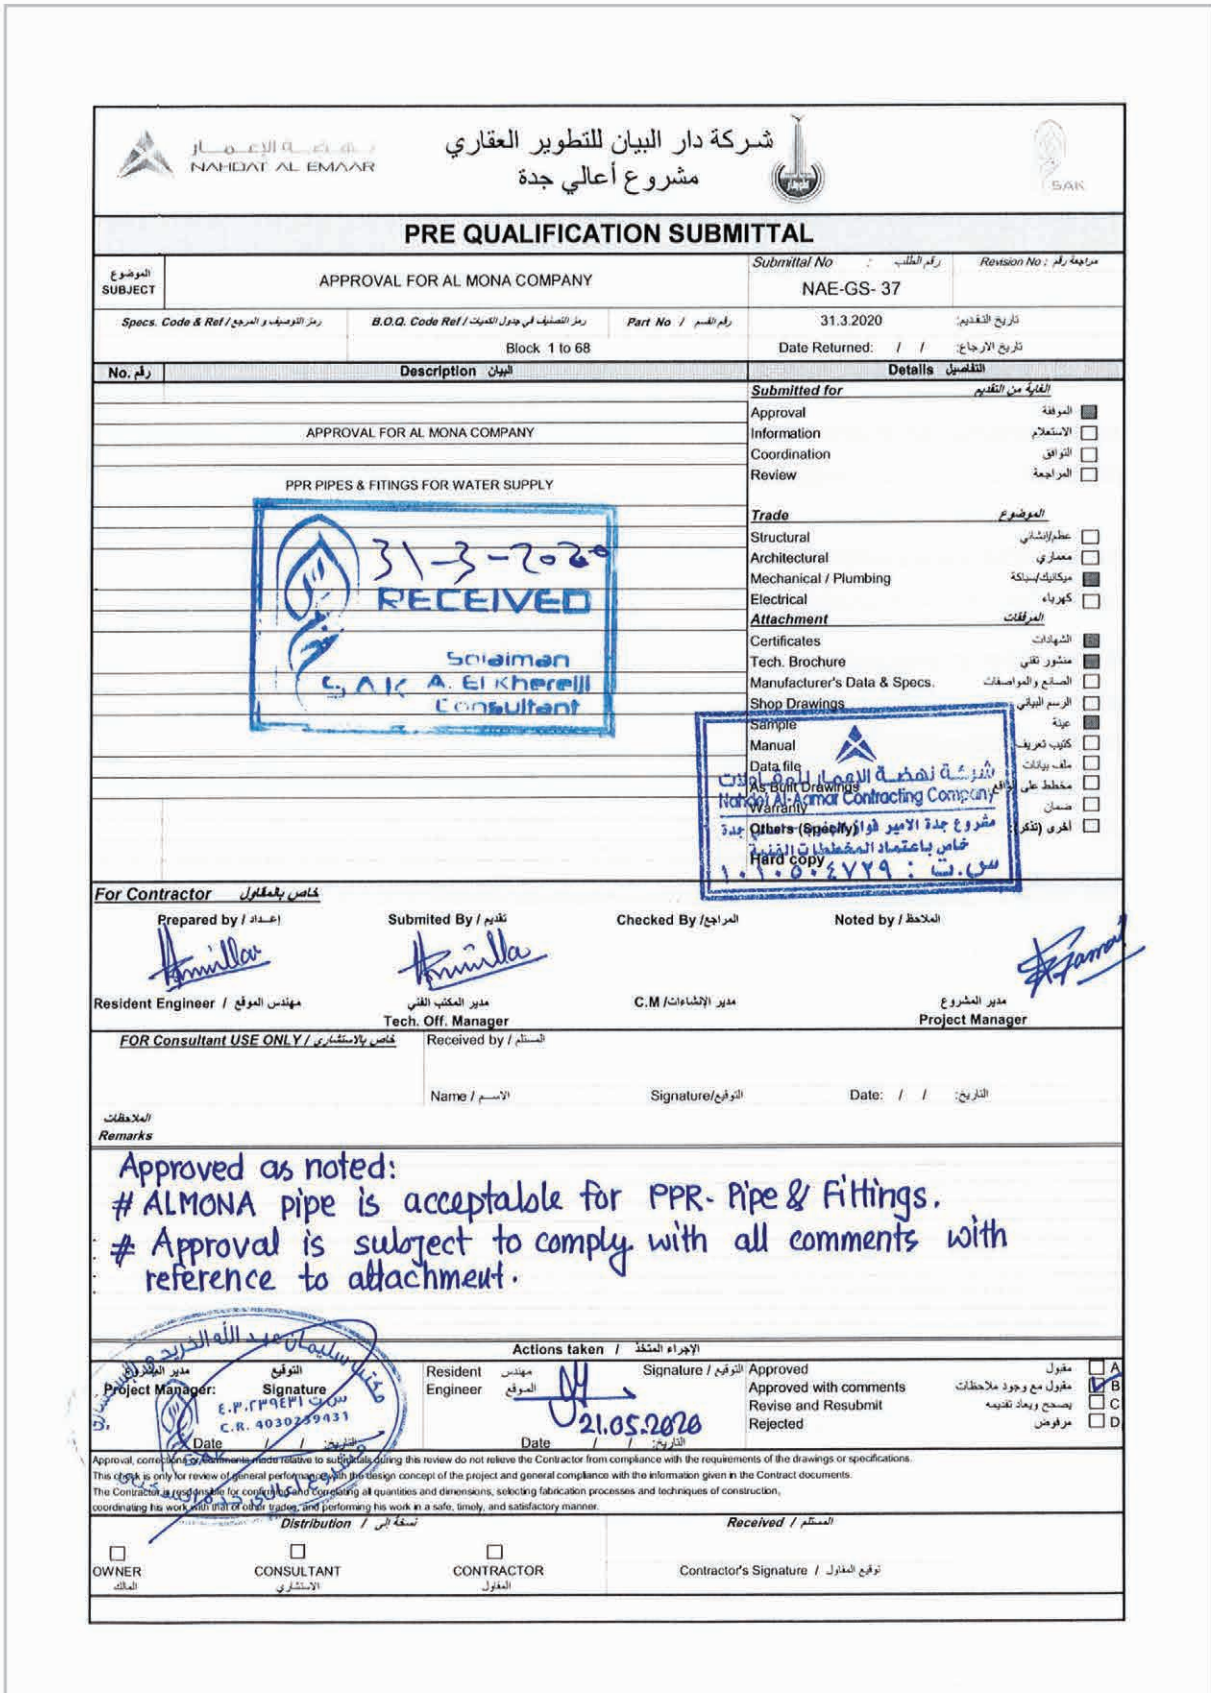 نهضة الإعمار
NAHDAT AL EMAAR
شركة دار البيان للتطوير العقاري
مشروع أعالي جدة
SAK
PRE QUALIFICATION SUBMITTAL
الموضوع
SUBJECT
APPROVAL FOR AL MONA COMPANY
Submittal No : رقم الطلب
NAE-GS- 37
Revision No : مراجعة رقم
Specs. Code & Ref / رمز التوصيف و المرجع
B.O.Q. Code Ref / رمز التصنيف في جدول الكميات
Part No / رقم القسم
31.3.2020 تاريخ التقديم:
Block 1 to 68
Date Returned: / / تاريخ الارجاع:
No. رقم
Description البيان
Details التفاصيل
Submitted for الغاية من التقديم
Approval الموفقة
APPROVAL FOR AL MONA COMPANY
Information الاستعلام
Coordination التوافق
Review المراجعة
PPR PIPES & FITINGS FOR WATER SUPPLY
31-3-2020
RECEIVED
Solaiman
SAK A. El Kherelji
Consultant
Trade الموضوع
Structural عظم/إنشائي
Architectural معماري
Mechanical / Plumbing ميكانيك/سباكة
Electrical كهرباء
Attachment المرفقات
Certificates الشهادات
Tech. Brochure منشور تقني
Manufacturer's Data & Specs. الصانع والمواصفات
Shop Drawings الرسم البياني
Sample عينة
Manual كتيب تعريف
Data file ملف بيانات
As Built Drawings مخطط على
Warranty ضمان
Others (Specify) اخرى (تذكر)
Hard copy
شركة نهضة الإعمار للمقاولات
Nahdet Al-Aamar Contracting Company
مشروع جدة الامير فواز جدة
خاص باعتماد المخططات الفنية
س.ت : ١٠١٠٥٠٤٧٢٩
For Contractor خاص بالمقاول
Prepared by / إعداد
Submited By / تقديم
Checked By / المراجع
Noted by / الملاحظ
Resident Engineer / مهندس الموقع
مدير المكتب الفني
Tech. Off. Manager
C.M / مدير الإنشاءات
مدير المشروع
Project Manager
FOR Consultant USE ONLY / خاص بالاستشاري
Received by / المستلم
Name / الاسم
Signature/التوقيع
Date: / / التاريخ:
الملاحظات
Remarks
Approved as noted:
# ALMONA pipe is acceptable for PPR- Pipe & Fittings.
# Approval is subject to comply with all comments with
reference to attachment.
Actions taken / الإجراء المتخذ
مدير المشروع
Project Manager:
التوقيع
Signature
Date / / التاريخ:
C.R. 4030239431
Resident مهندس
Engineer الموقع
Signature / التوقيع
21.05.2020
Date / / التاريخ:
Approved مقبول A
Approved with comments مقبول مع وجود ملاحظات B
Revise and Resubmit يصحح ويعاد تقديمه C
Rejected مرفوض D
Approval, corrections or comments made relative to submittals during this review do not relieve the Contractor from compliance with the requirements of the drawings or specifications.
This check is only for review of general performance with the design concept of the project and general compliance with the information given in the Contract documents.
The Contractor is responsible for confirming and correlating all quantities and dimensions, selecting fabrication processes and techniques of construction,
coordinating his work with that of other trades, and performing his work in a safe, timely, and satisfactory manner.
Distribution / نسخة إلى
Received / المستلم
OWNER
المالك
CONSULTANT
الاستشاري
CONTRACTOR
المقاول
Contractor's Signature / توقيع المقاول